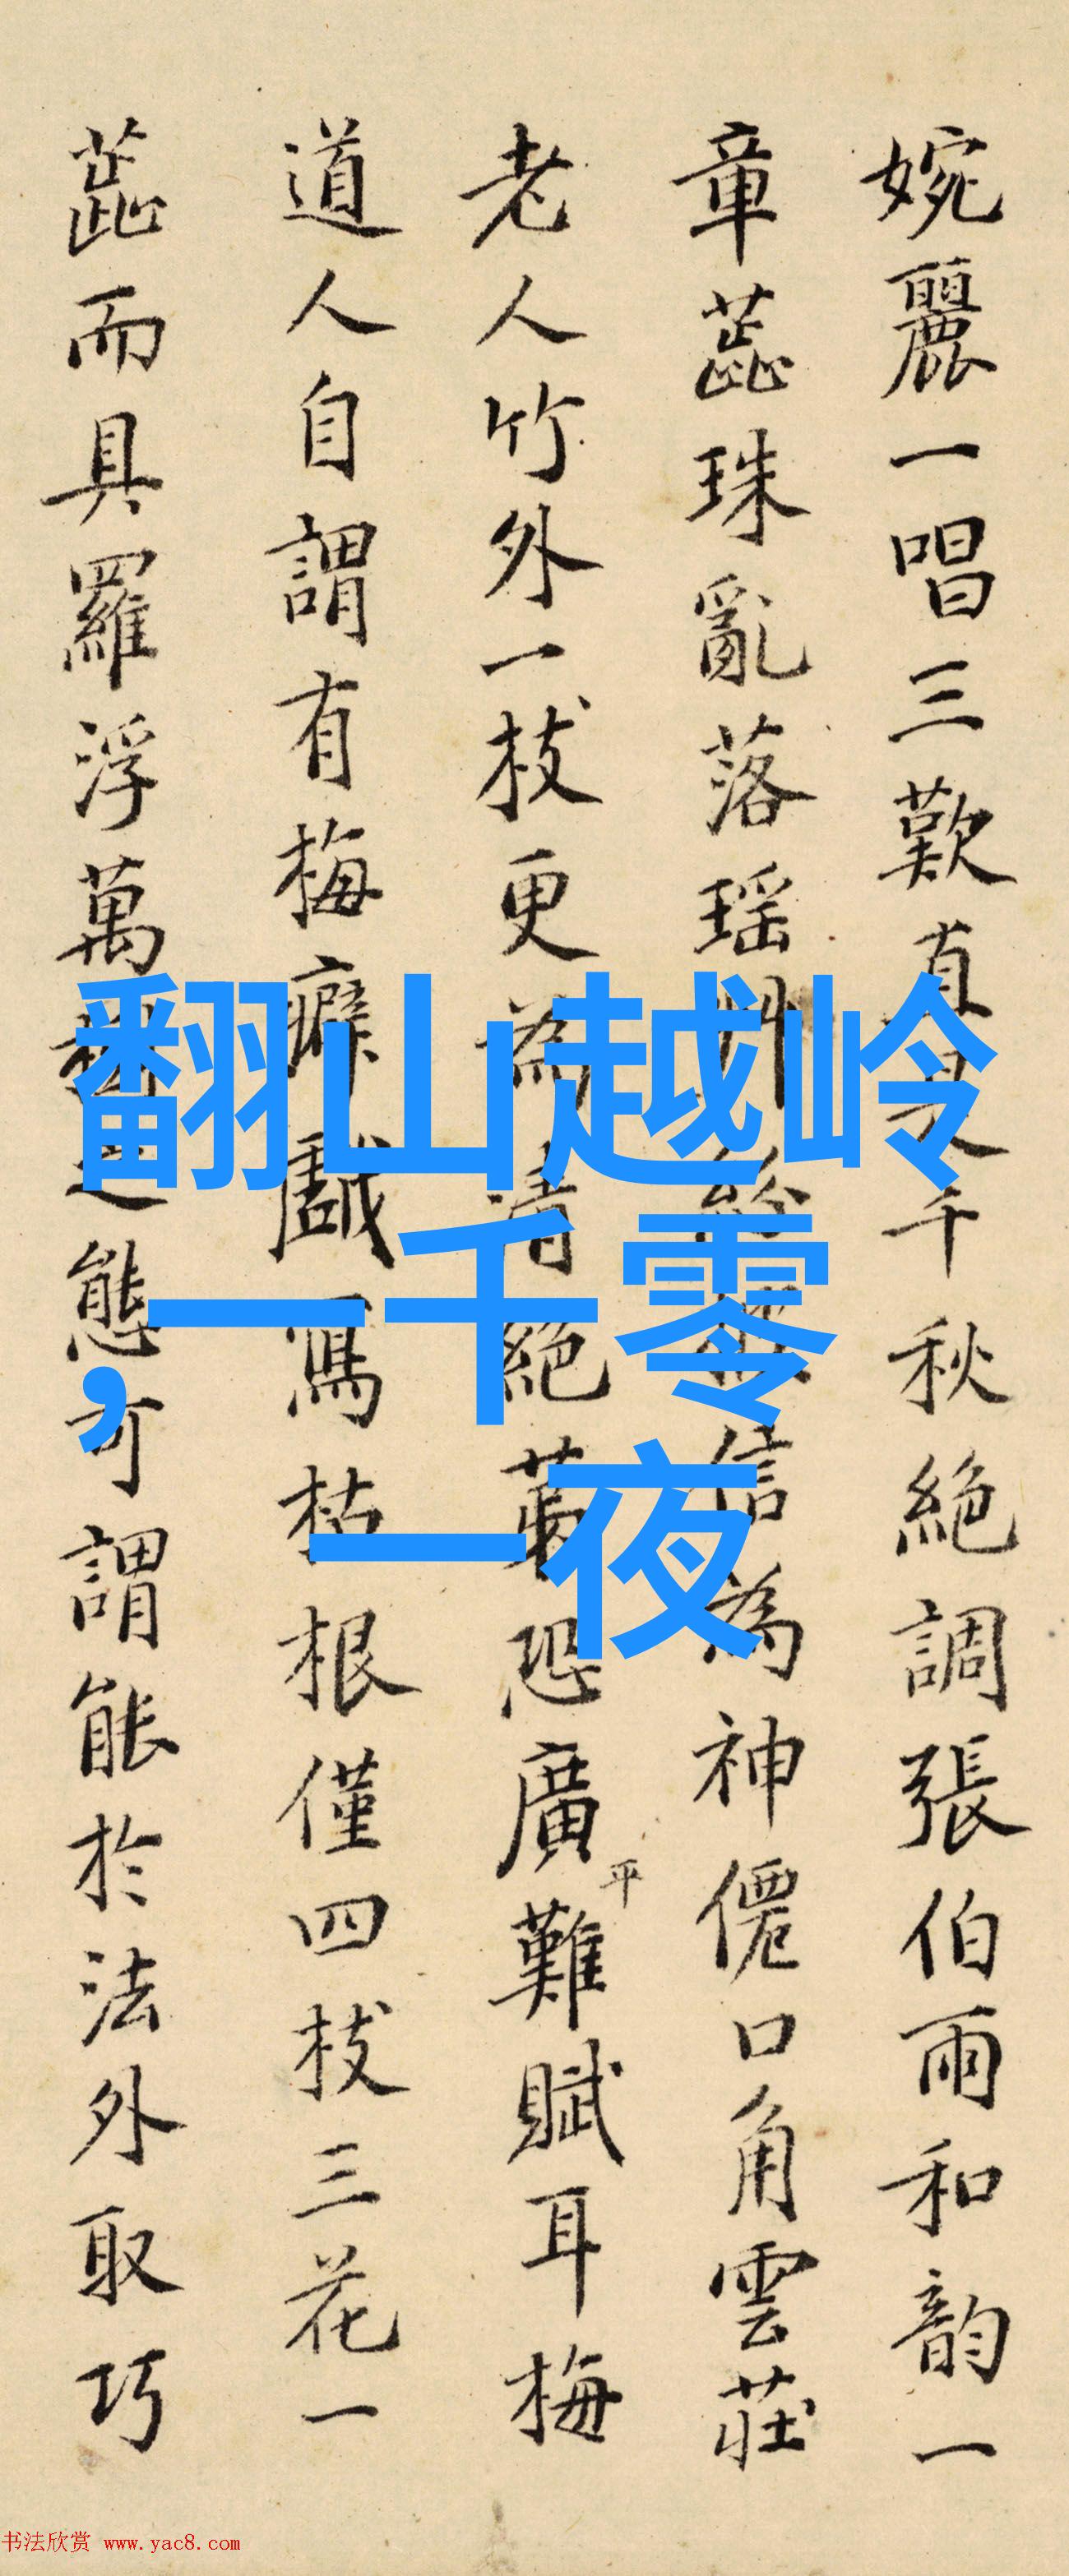 婉麗一唱三歎真是千秋絕調張伯雨和韵一
章蕋珠亂落瑶信為神僊口角雲莊
老人竹外一枝更為清絕苐恐廣平難賦耳梅
道人自謂有梅癖戲寫枯根僅四枝三花一
蕋而具羅浮萬態可謂能於法外取巧
翻山越岭
，一千零
一夜
书法欣赏 www.yac8.com